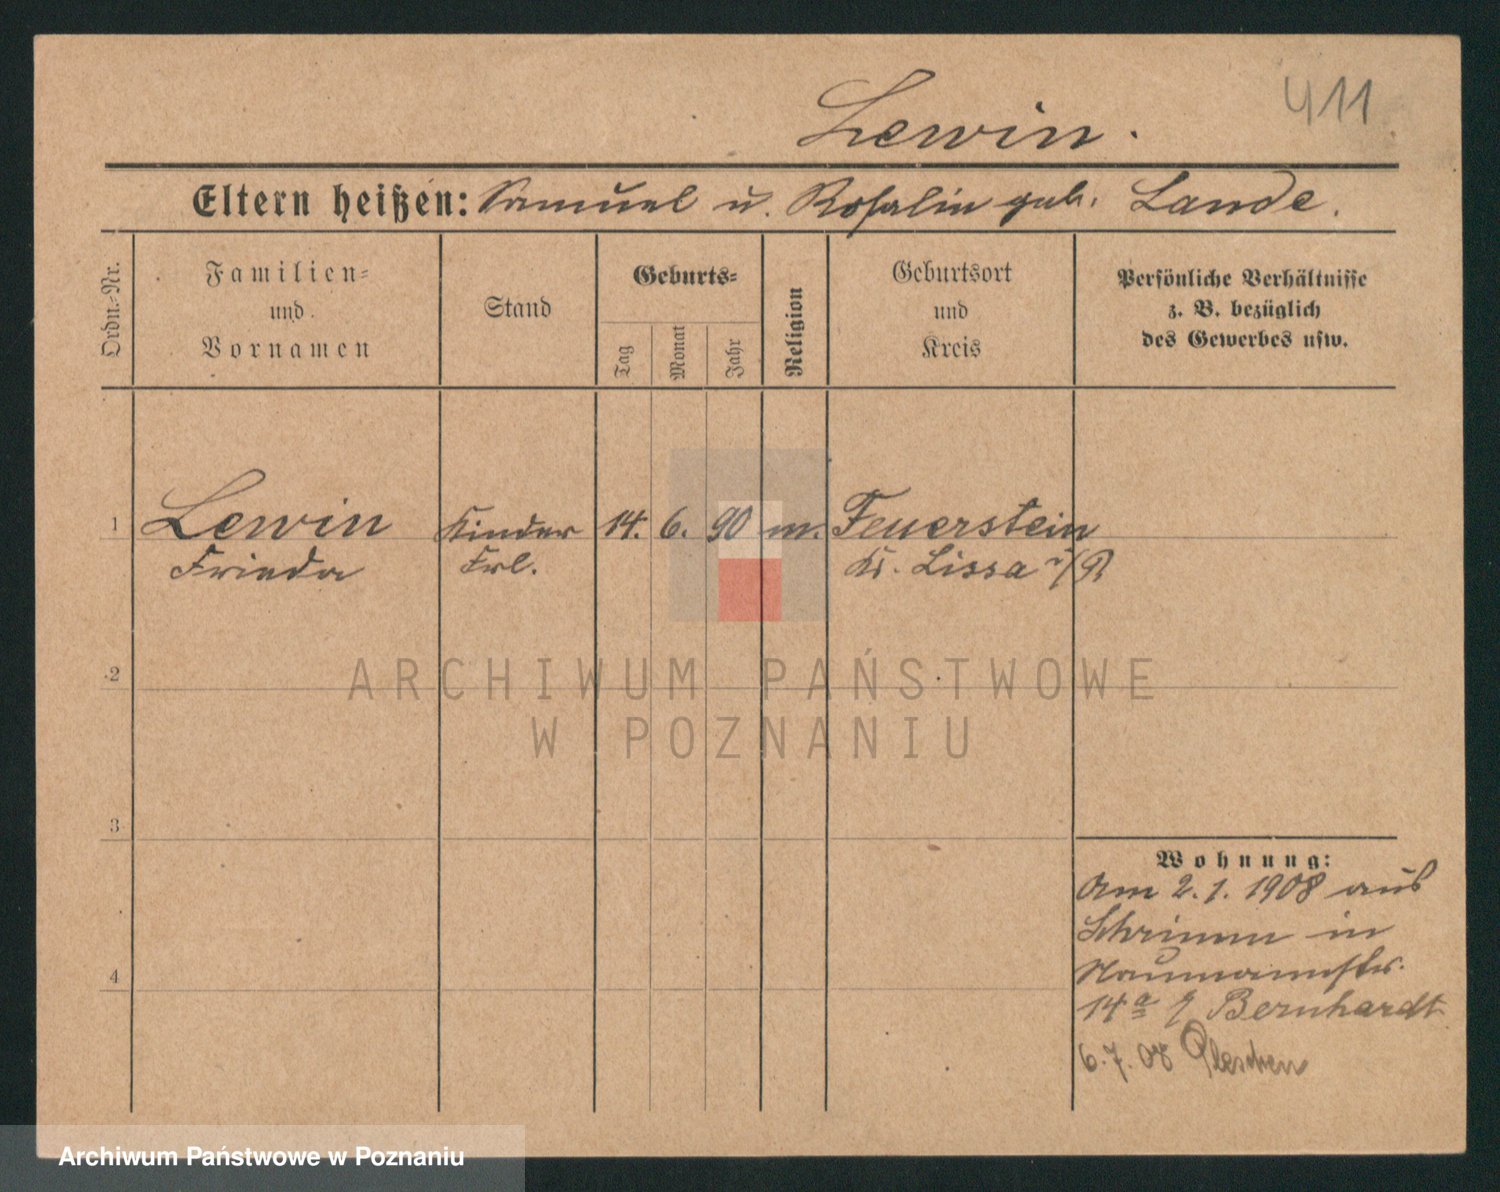 411
Lewin.
Eltern heißen: Samuel u. Rosalin geb. Lande.
Ordn.-Nr.
Familien-
und
Vornamen
Stand
Geburts-
Tag
Monat
Jahr
Religion
Geburtsort
und
Kreis
Persönliche Verhältnisse
z. B. bezüglich
des Gewerbes usw.
1 Lewin Kinder 14. 6. 90 m. Feuerstein
Frieda Frl. Kr. Lissa i/P
2
3
4
Wohnung:
Am 2.1.1908 aus
Schrimm in
Naumannstr.
14a Bernhardt
6.7.08 Pleschen
ARCHIWUM PAŃSTWOWE
W POZNANIU
Archiwum Państwowe w Poznaniu